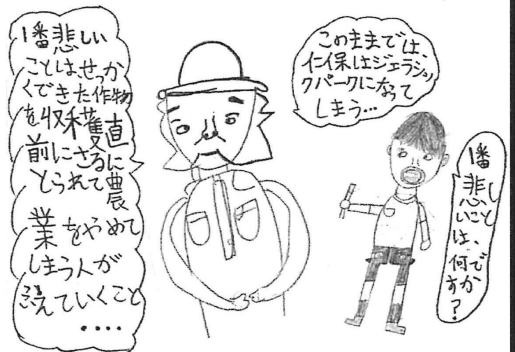 1番悲しい
ことは、せっか
くできた作物
を収穫直
前にさるに
とられて農
業をやめて
しまう人が
増えていくこと
・・・・
このままでは
仁保はジェラシッ
クパークになって
しまう…
1番
悲し
いこと
は、
何で
すか?